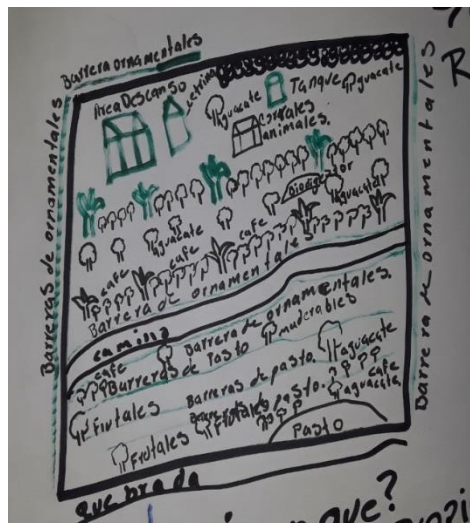 Barrera ornamentales
Barreras de ornamentales
Barrera de ornamentales
Area Descanso
Letrina
Aguacate
Tanque
Aguacate
Corrales
animales.
Biodigestor
Aguacate
cafe
Aguacate
cafe
cafe
cafe
Barrera de ornamentales
camino
Barrera de ornamentales.
cafe
Barreras de Pasto
maderables
Barreras de pasto.
aguacate
Frutales
Frutales
pasto.
cafe
aguacate.
Frutales
Pasto
quebrada
que?